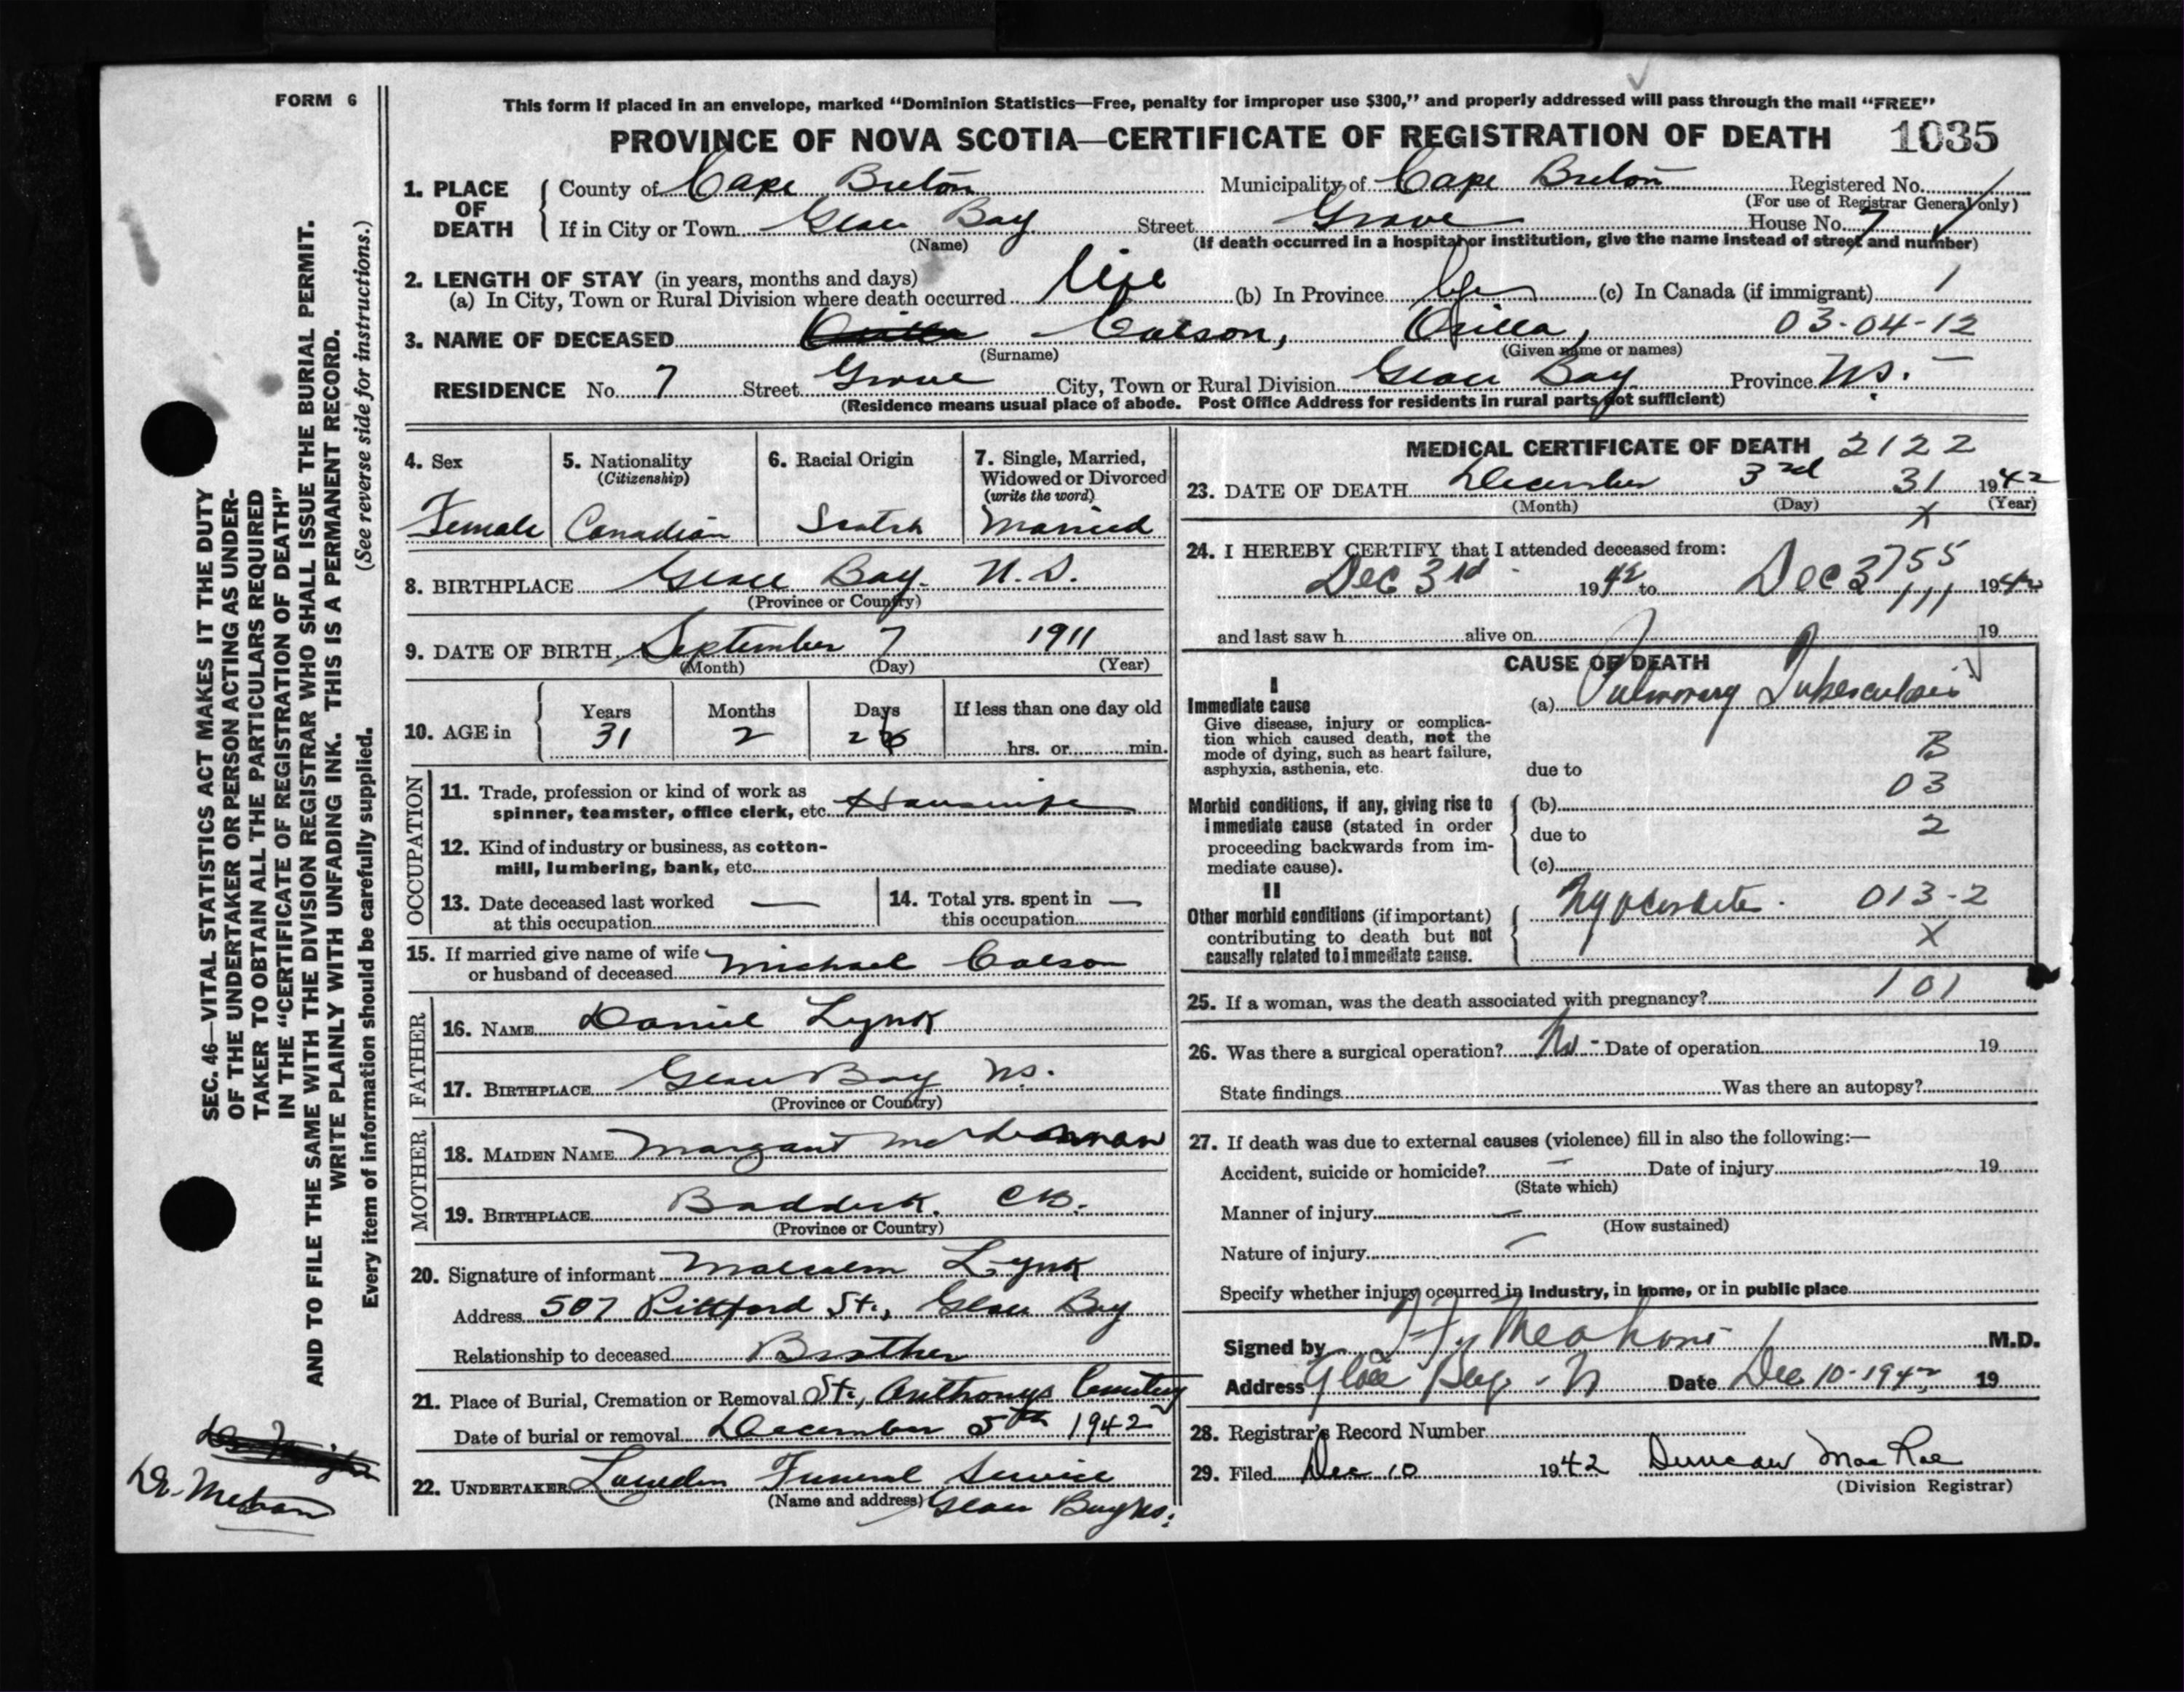 FORM 6
This form if placed in an envelope, marked “Dominion Statistics—Free, penalty for improper use $300,” and properly addressed will pass through the mail “FREE”
PROVINCE OF NOVA SCOTIA—CERTIFICATE OF REGISTRATION OF DEATH 1035
1. PLACE OF DEATH
County of Cape Breton Municipality of Cape Breton Registered No.
(For use of Registrar General only)
If in City or Town Glace Bay Street Grove House No. 7
(Name) (If death occurred in a hospital or institution, give the name instead of street and number)
2. LENGTH OF STAY (in years, months and days)
(a) In City, Town or Rural Division where death occurred life (b) In Province life (c) In Canada (if immigrant) 1
3. NAME OF DECEASED Colson, 03-04-12
(Surname) (Given name or names)
RESIDENCE No. 7 Street Grove City, Town or Rural Division Glace Bay Province N.S.
(Residence means usual place of abode. Post Office Address for residents in rural parts not sufficient)
4. Sex
Female
5. Nationality
(Citizenship)
Canadian
6. Racial Origin
Scotch
7. Single, Married,
Widowed or Divorced
(write the word)
Married
8. BIRTHPLACE Glace Bay N.S.
(Province or Country)
9. DATE OF BIRTH September 7 1911
(Month) (Day) (Year)
10. AGE in Years Months Days If less than one day old
31 2 26 hrs. or min.
OCCUPATION
11. Trade, profession or kind of work as
spinner, teamster, office clerk, etc. Housewife
12. Kind of industry or business, as cotton-
mill, lumbering, bank, etc.
13. Date deceased last worked —
at this occupation
14. Total yrs. spent in —
this occupation
15. If married give name of wife
or husband of deceased Michael Colson
FATHER
16. NAME Daniel Lynk
17. BIRTHPLACE Glace Bay N.S.
(Province or Country)
MOTHER
18. MAIDEN NAME Margaret
19. BIRTHPLACE Baddeck. C.B.
(Province or Country)
20. Signature of informant Malcolm Lynk
Address 507 Pittford St., Glace Bay
Relationship to deceased Brother
21. Place of Burial, Cremation or Removal St. Anthonys Cemetery
Date of burial or removal December 5th 1942
22. UNDERTAKER Funeral Service
(Name and address) Glace Bay N.S.
MEDICAL CERTIFICATE OF DEATH 2122
23. DATE OF DEATH December 3rd 31 1942
(Month) (Day) (Year)
X
24. I HEREBY CERTIFY that I attended deceased from:
755
Dec 3rd 1942 to Dec 3 1942
111
and last saw h alive on 19
CAUSE OF DEATH
I
Immediate cause
Give disease, injury or complica-
tion which caused death, not the
mode of dying, such as heart failure,
asphyxia, asthenia, etc.
(a) Pulmonary Tuberculosis
B
due to
03
Morbid conditions, if any, giving rise to
immediate cause (stated in order
proceeding backwards from im-
mediate cause).
(b)
2
due to
(c)
II
Other morbid conditions (if important)
contributing to death but not
causally related to immediate cause.
013-2
X
25. If a woman, was the death associated with pregnancy? 101
26. Was there a surgical operation? No Date of operation 19
State findings Was there an autopsy?
27. If death was due to external causes (violence) fill in also the following:—
Accident, suicide or homicide? — Date of injury 19
(State which)
Manner of injury —
(How sustained)
Nature of injury —
Specify whether injury occurred in industry, in home, or in public place
Signed by M.D.
Address Glace Bay - N Date Dec 10-1942 19
28. Registrar's Record Number
29. Filed Dec 10 1942 Duncan MacRae
(Division Registrar)
SEC. 46—VITAL STATISTICS ACT MAKES IT THE DUTY
OF THE UNDERTAKER OR PERSON ACTING AS UNDER-
TAKER TO OBTAIN ALL THE PARTICULARS REQUIRED
IN THE “CERTIFICATE OF REGISTRATION OF DEATH”
AND TO FILE THE SAME WITH THE DIVISION REGISTRAR WHO SHALL ISSUE THE BURIAL PERMIT.
WRITE PLAINLY WITH UNFADING INK. THIS IS A PERMANENT RECORD.
(See reverse side for instructions.)
Every item of information should be carefully supplied.
Dr.